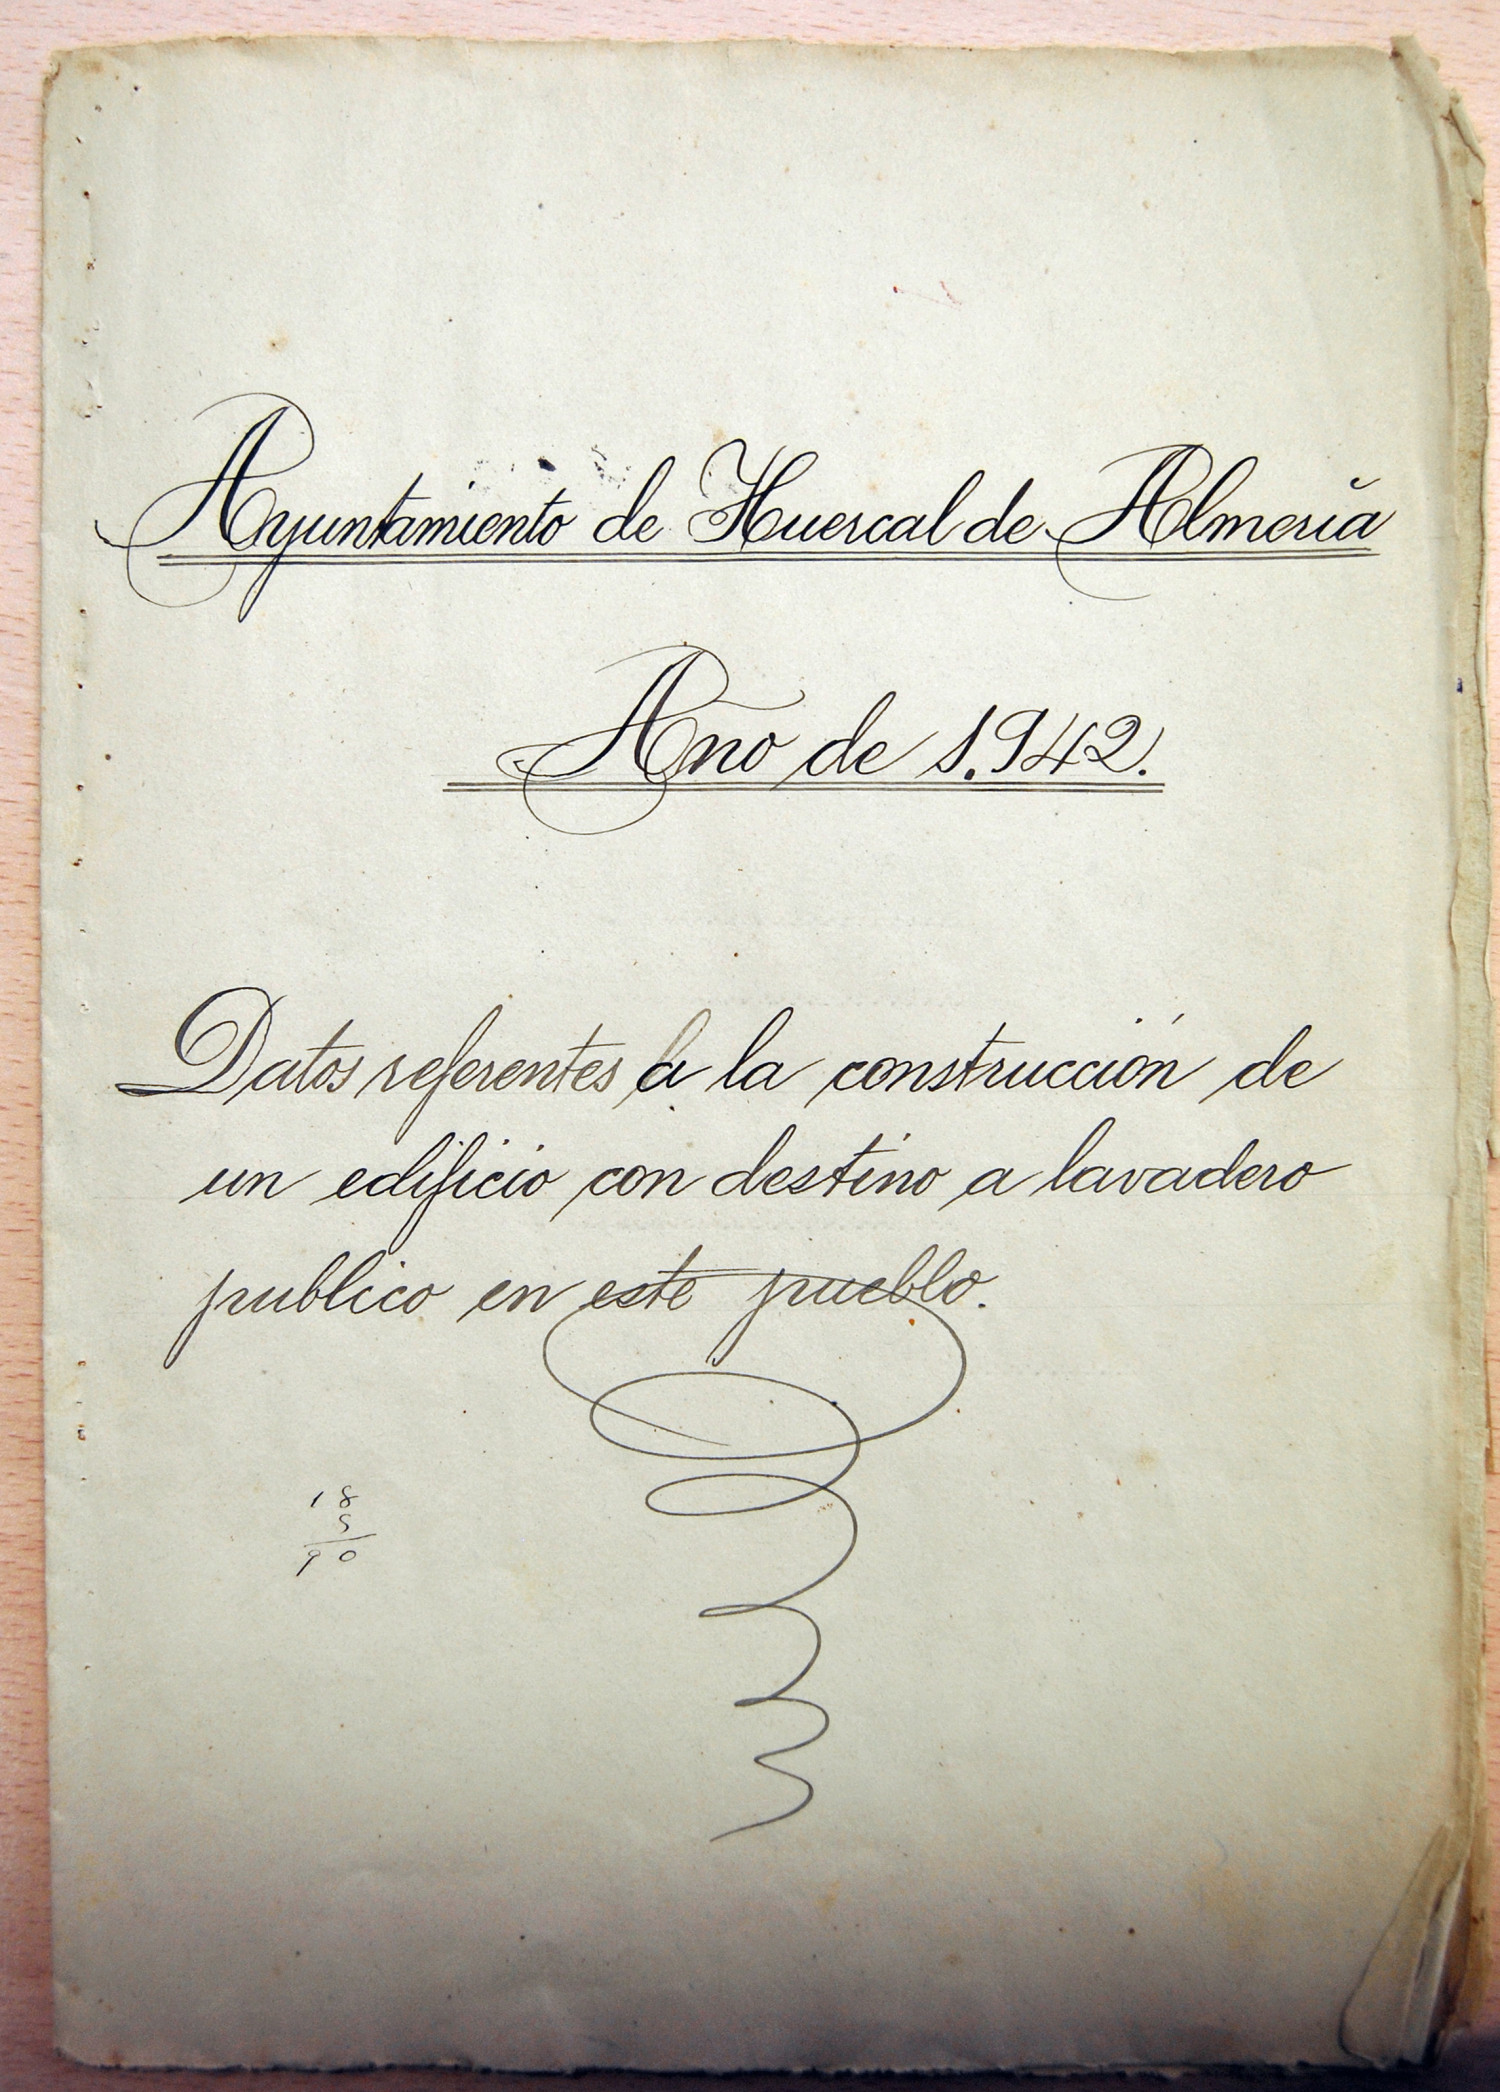 Ayuntamiento de Huercal de Almería
Año de 1.942.
Datos referentes a la construcción de
un edificio con destino a lavadero
publico en este pueblo.
18
5
90